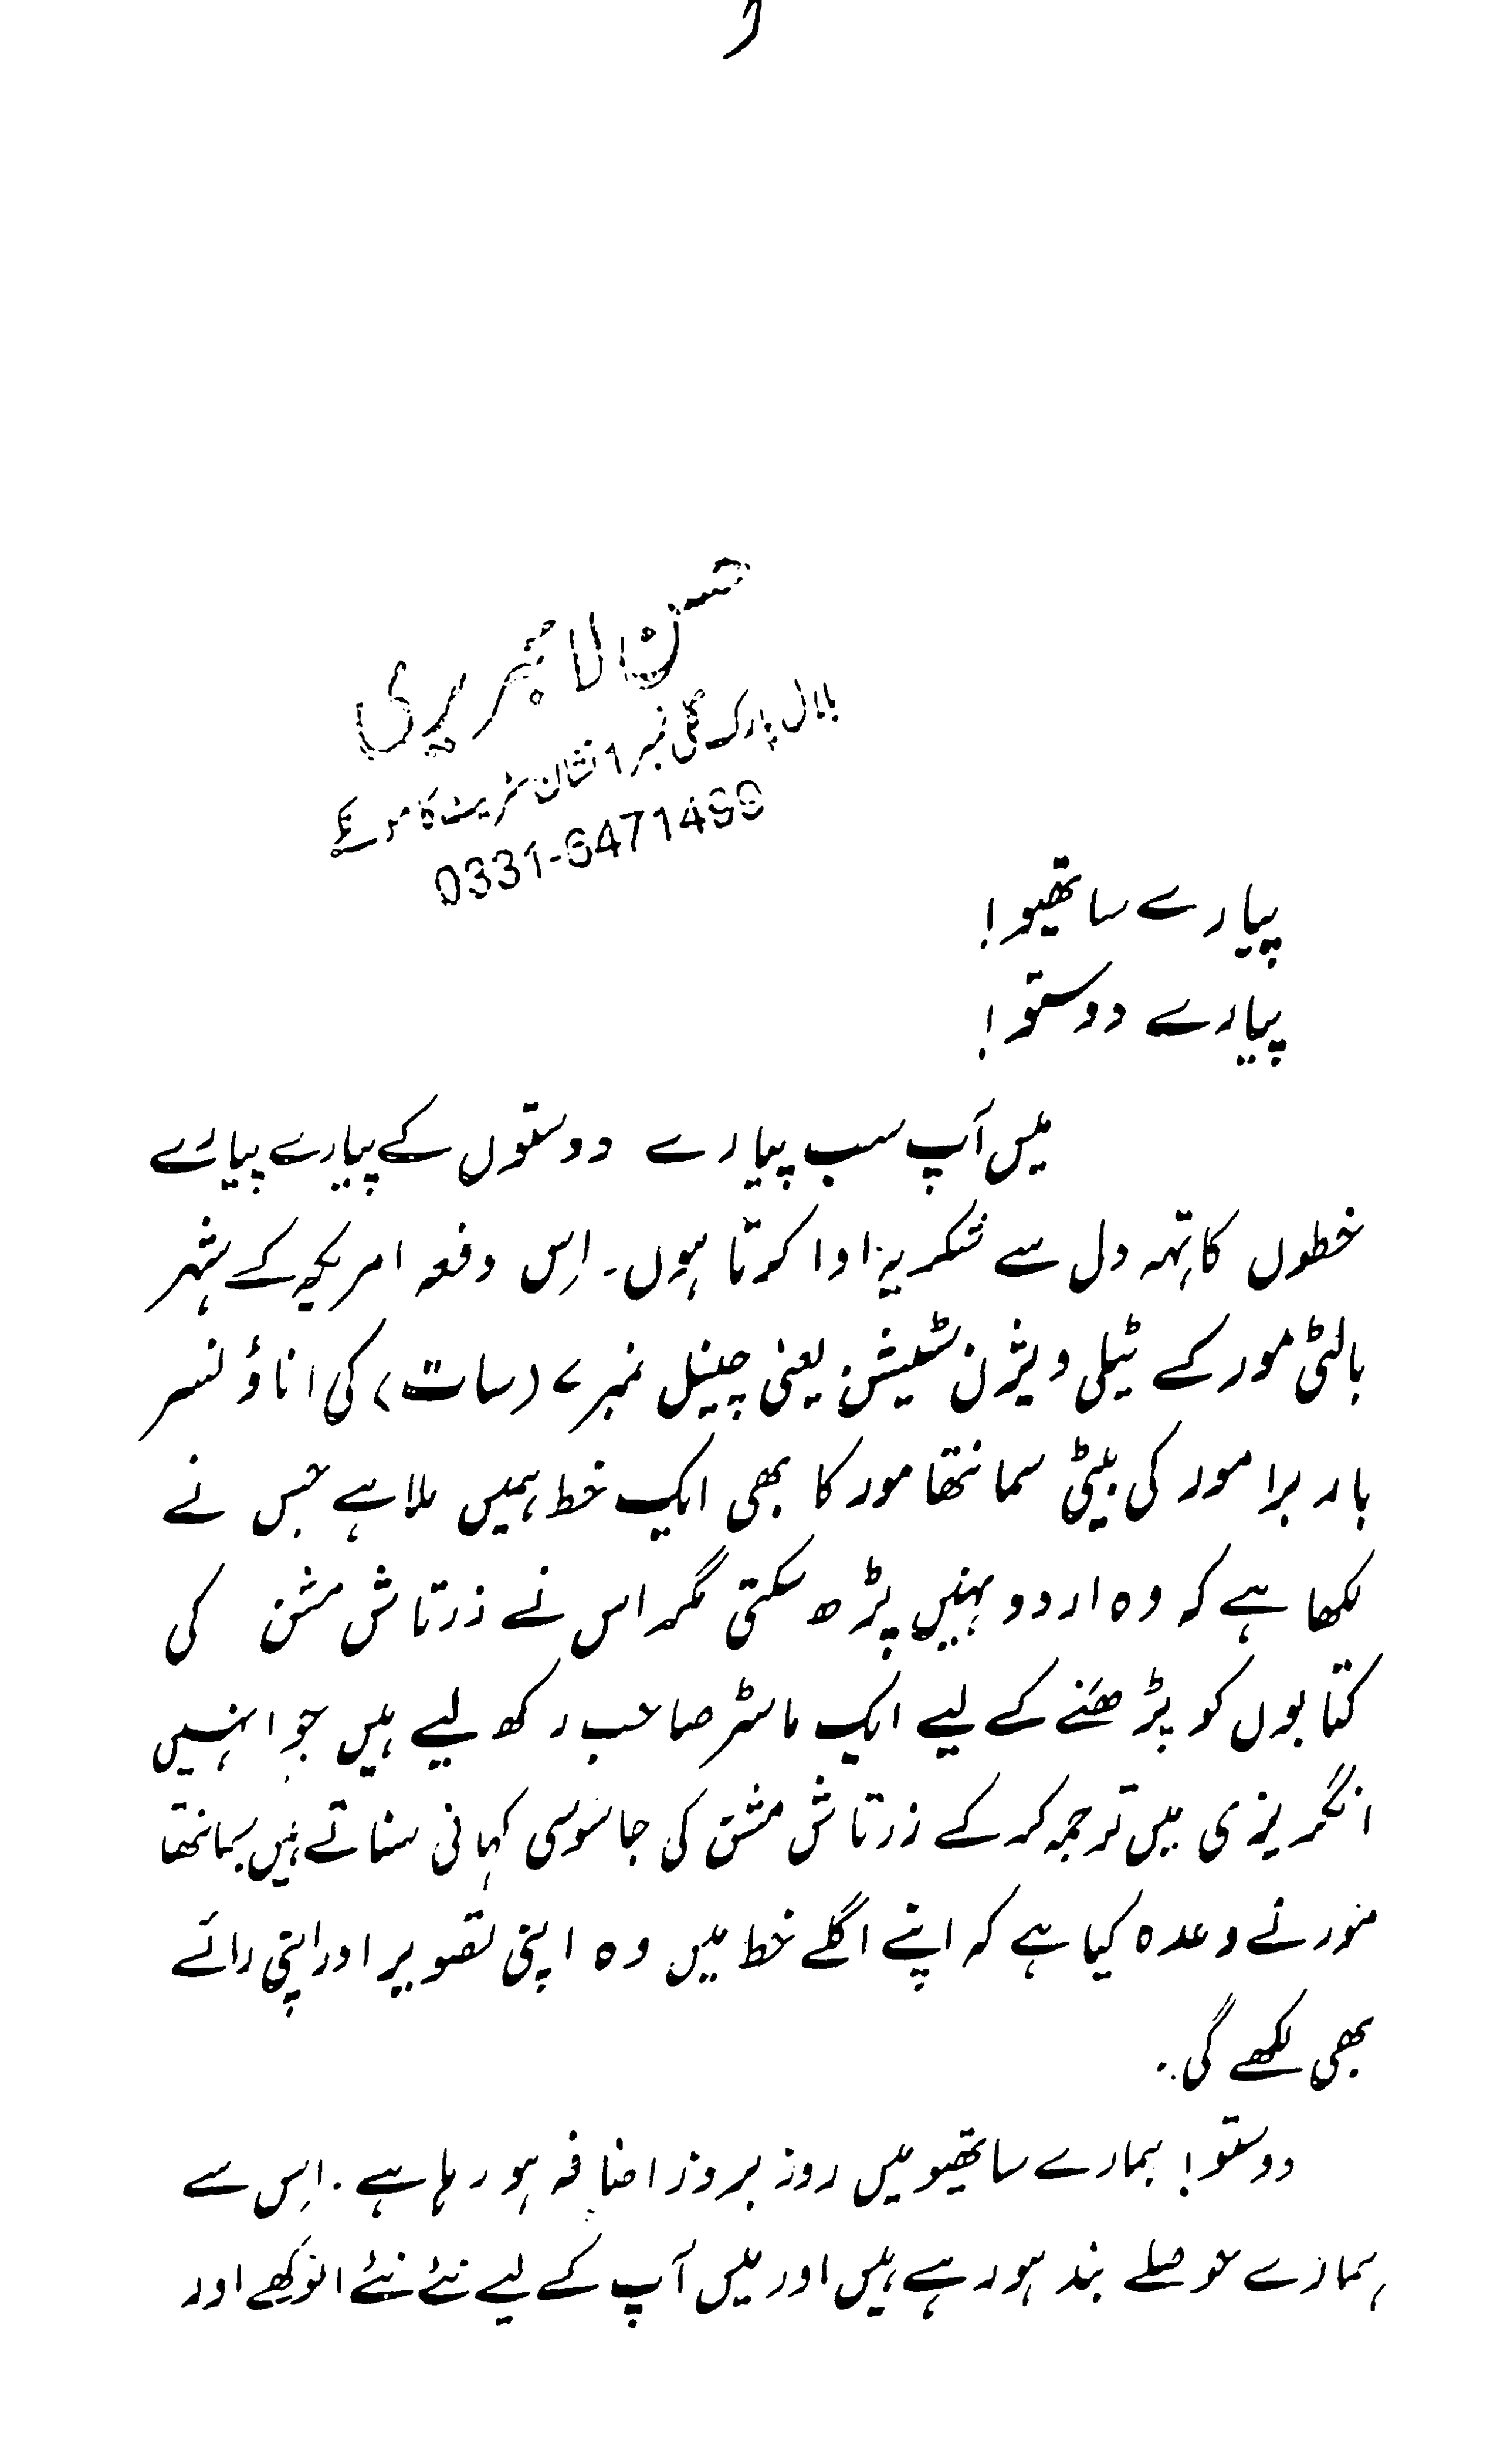 حسن لائبریری
بلال پارک گلی نمبر
0331-6471499
پیارے ساتھیو!
پیارے دوستو!
میں آپ سب پیارے دوستوں کے پیارے پیارے
خطوں کا تہہ دل سے شکریہ ادا کرتا ہوں۔ اِس دفعہ امریکہ کے شہر
بالٹی مور کے ٹیلی ویژن سٹیشن یعنی چینل نمبر ۷ (سات) کی اناؤنسر
باربرا مور کی بیٹی سمانتھا مور کا بھی ایک خط ہمیں ملا ہے جس نے
لکھا ہے کہ وہ اردو نہیں پڑھ سکتی مگر اس نے زرتاش مشن کی
کتابوں کو پڑھنے کے لیے ایک ماسٹر صاحب رکھ لیے ہیں جو انہیں
انگریزی میں ترجمہ کرکے زرتاش مشن کی جاسوسی کہانی سناتے ہیں سمانتھا
مور نے وعدہ کیا ہے کہ اپنے اگلے خط میں وہ اپنی تصویر اور اپنی رائے
بھی لکھے گی۔
دوستو! ہمارے ساتھیو میں روز بروز اضافہ ہو رہا ہے۔ اِس سے
ہمارے حوصلے بلند ہو رہے ہیں اور میں آپ کے لیے نئے نئے انوکھے اور